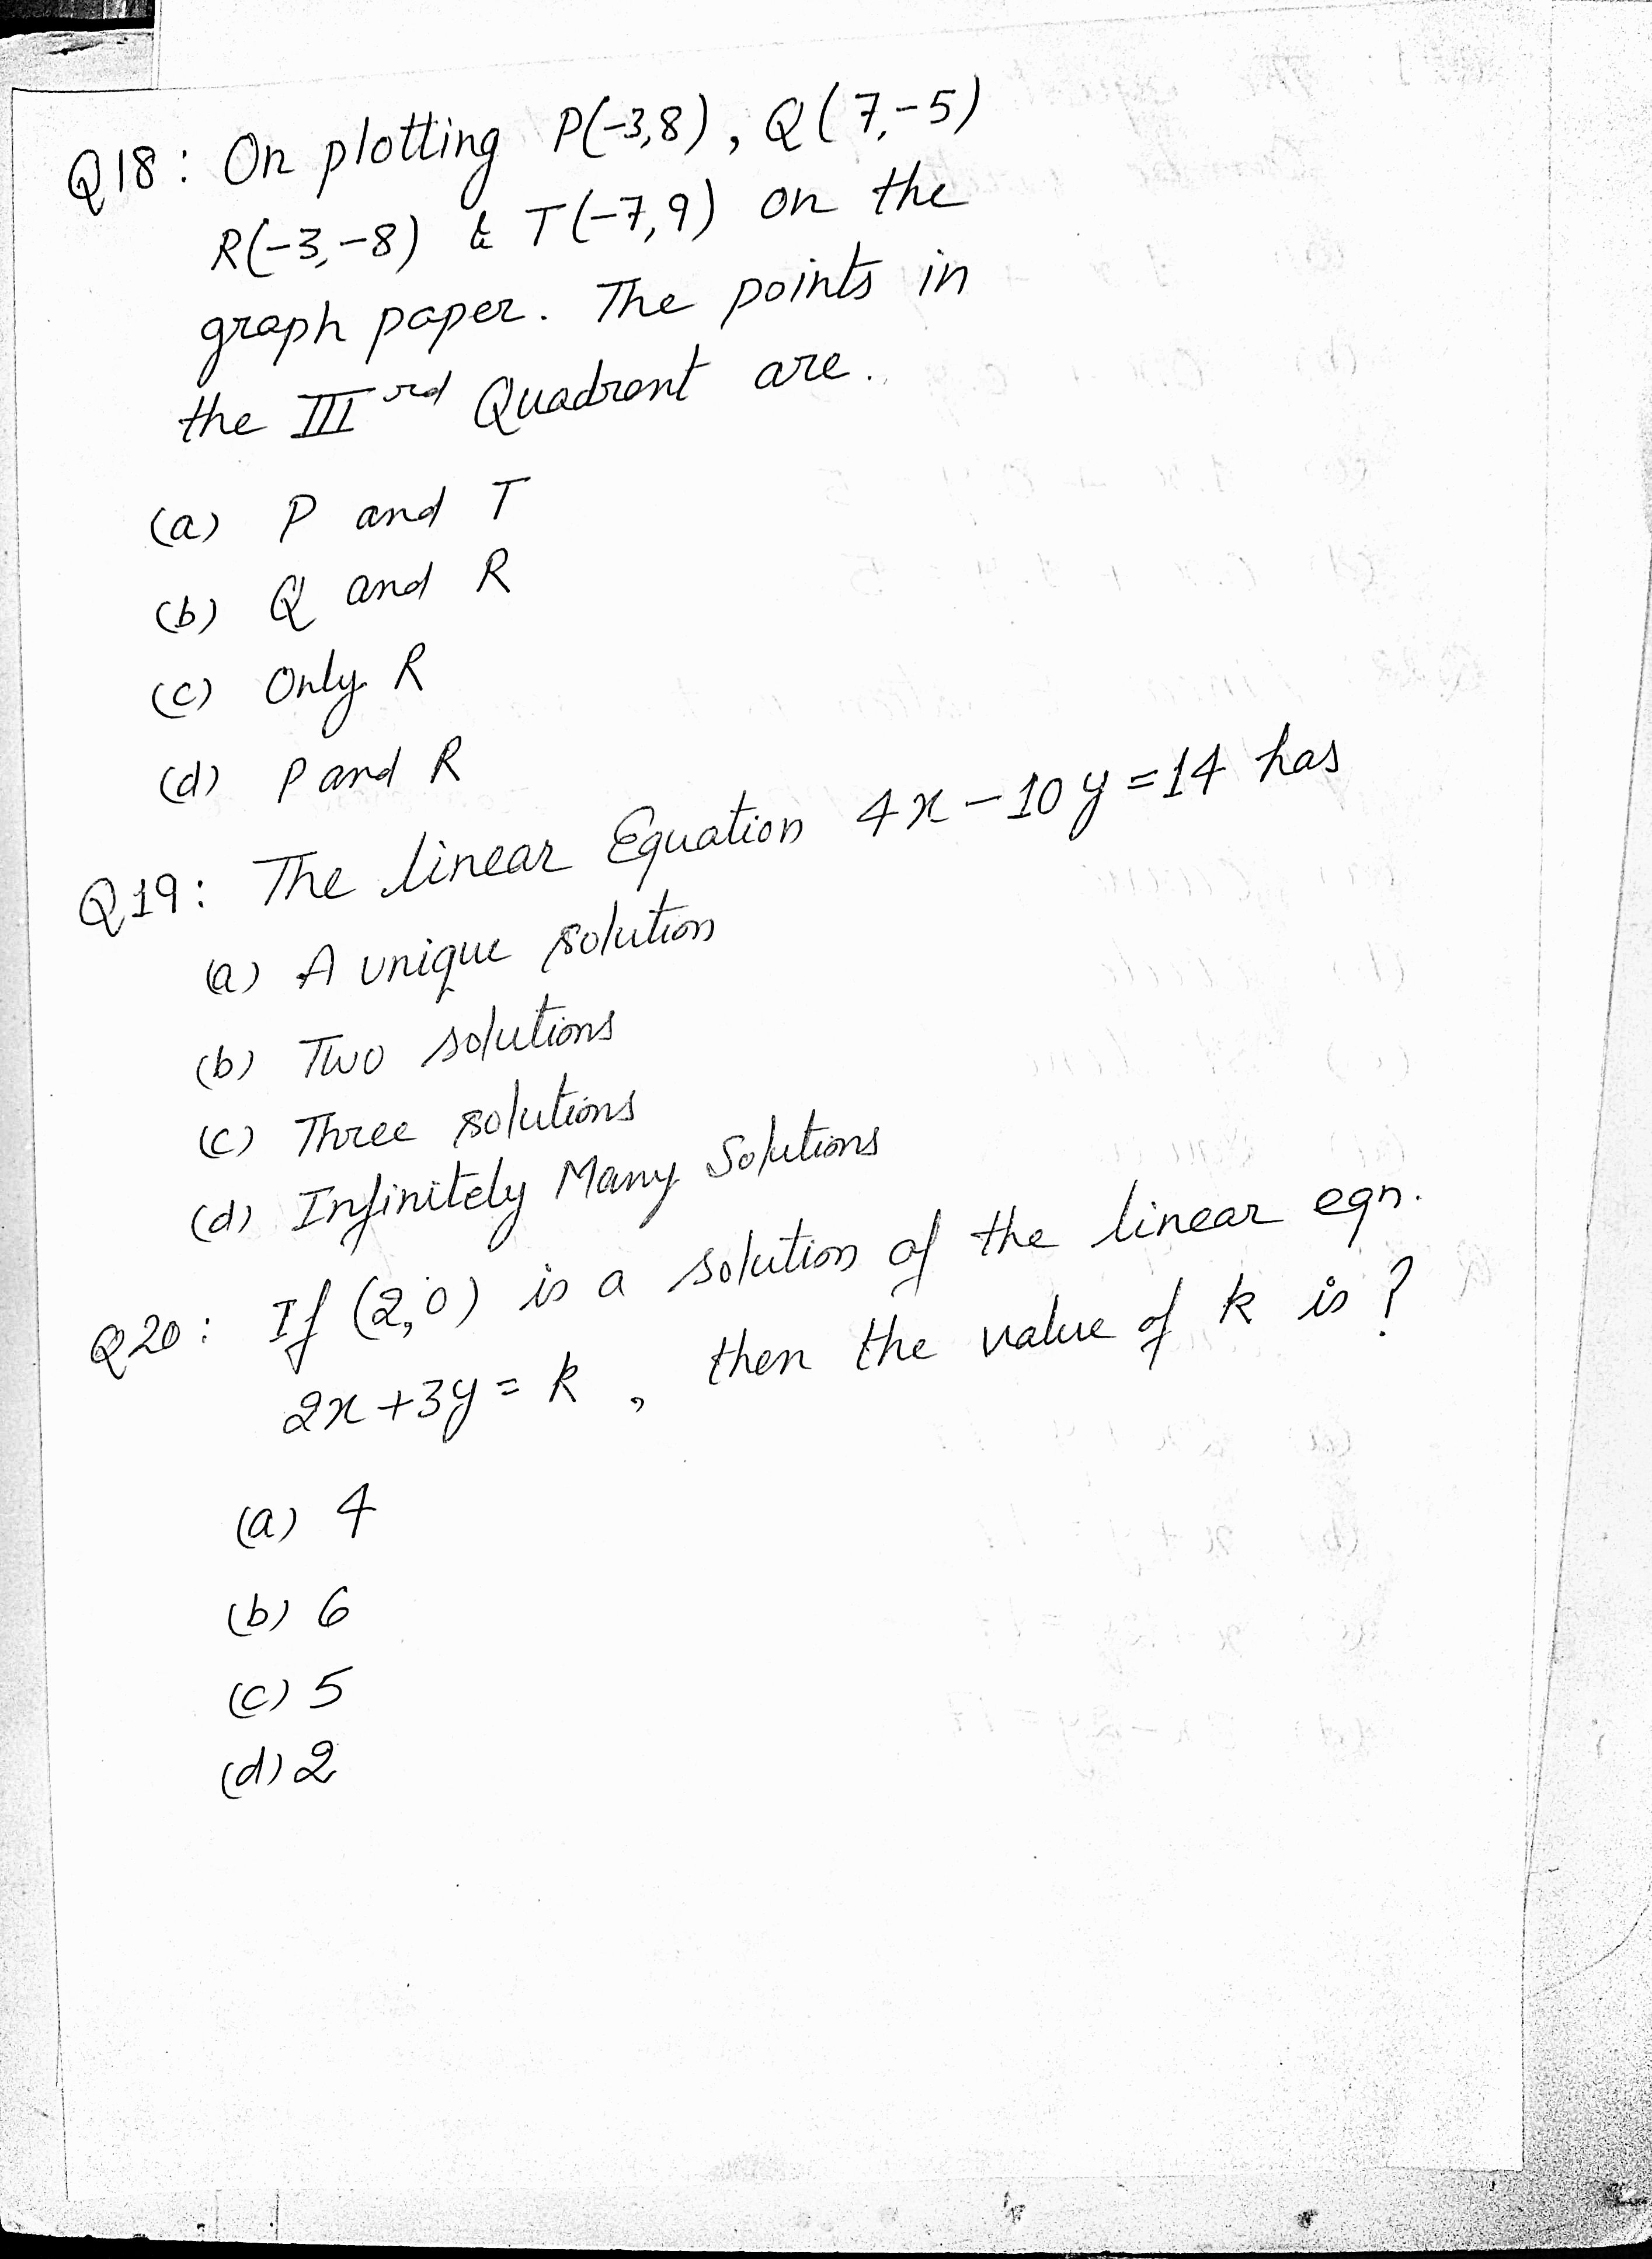 Q18: On plotting P(-3,8), Q(7,-5)
R(-3,-8) & T(-7,9) on the
graph paper. The points in
the III rd Quadrant are.
(a) P and T
(b) Q and R
(c) Only R
(d) P and R
Q19: The linear Equation 4x-10y=14 has
(a) A unique solution
(b) Two solutions
(c) Three solutions
(d) Infinitely Many Solutions
Q20: If (2,0) is a solution of the linear eqn.
2x+3y=k, then the value of k is?
(a) 4
(b) 6
(c) 5
(d) 2